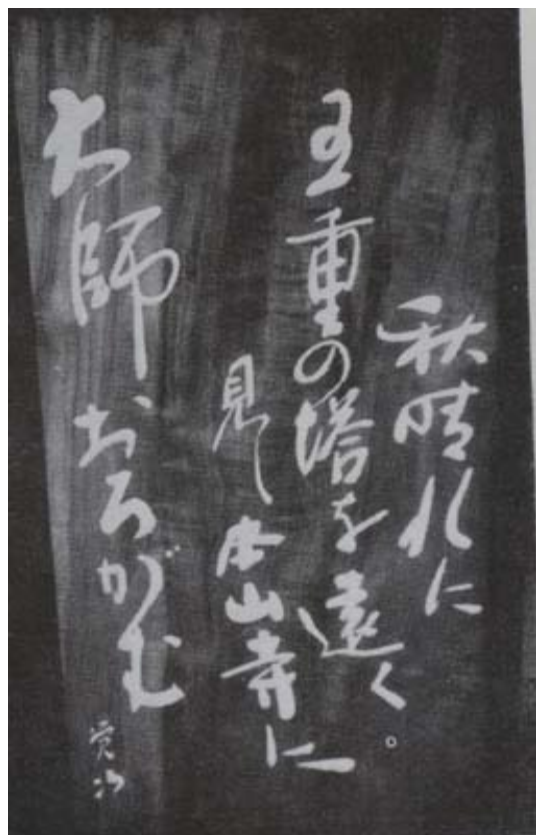 秋晴れに
五重の塔を遠く。
見し本山寺に
大師おろがむ